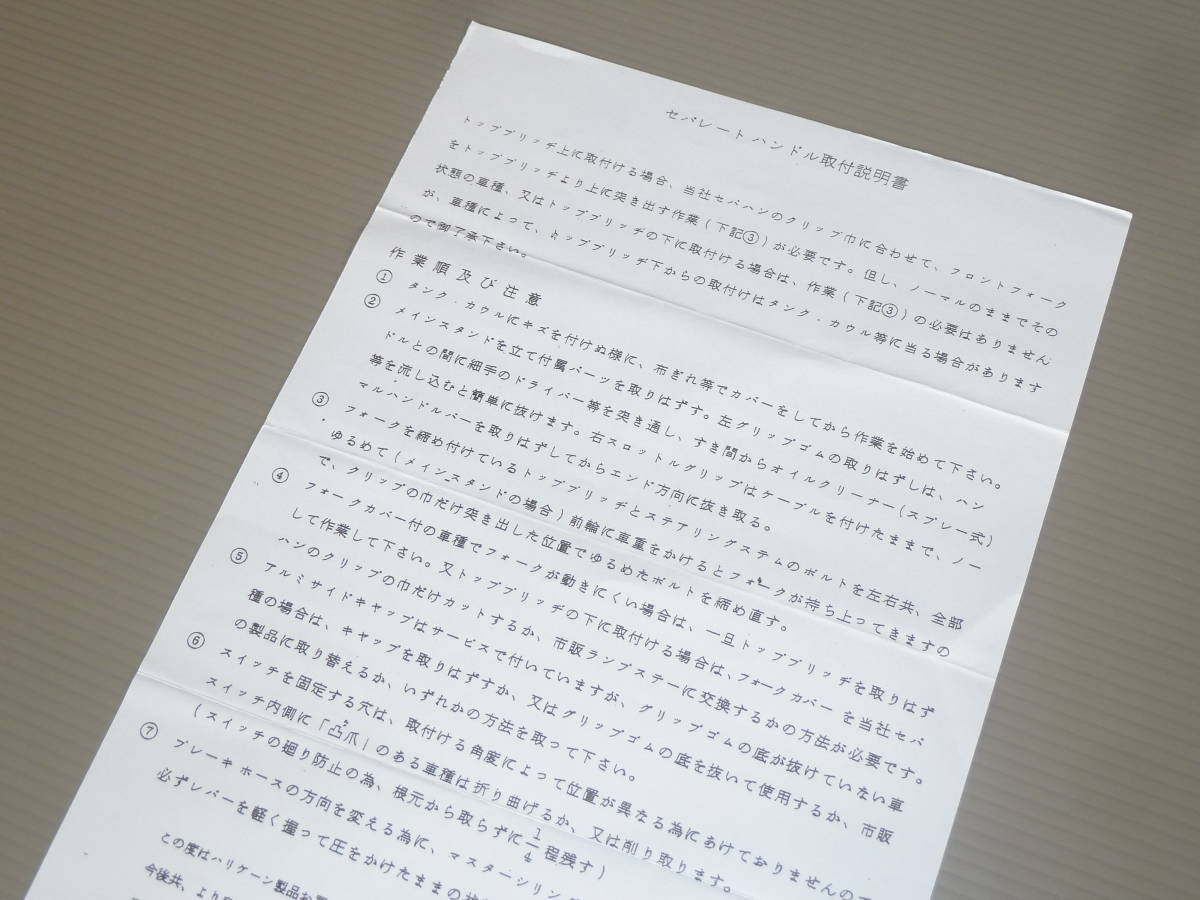 セパレート ハンドル取付説明書
トップブリッヂ上に取付ける場合、当社セパハンのクリップ巾に合わせて、フロントフォーク
をトップブリッヂより上に突き出す作業(下記③)が必要です。但し、ノーマルのままでその
状態の車種、又はトップブリッヂの下に取付ける場合は、作業(下記③)の必要はありません
が、車種によって、トップブリッヂ下からの取付けはタンク・カウル等に当る場合があります
ので御了承下さい。
作業順及び注意
① タンク・カウルにキズを付けぬ様に、布ぎれ等でカバーをしてから作業を始めて下さい。
② メインスタンドを立て付属パーツを取りはずす。左グリップゴムの取りはずしは、ハン
ドルとの間に細手のドライバー等を突き通し、すき間からオイルクリーナー(スプレー式)
等を流し込むと簡単に抜けます。右スロットルグリップはケーブルを付けたままで、ノー
マルハンドルバーを取りはずしてからエンド方向に抜き取る。
③ フォークを締め付けているトップブリッヂとステアリングステムのボルトを左右共、全部
ゆるめて(メインスタンドの場合)前輪に車重をかけるとフォークが持ち上ってきますの
で、クリップの巾だけ突き出した位置でゆるめたボルトを締め直す。
④ フォークカバー付の車種でフォークが動きにくい場合は、一旦トップブリッヂを取りはず
して作業して下さい。又トップブリッヂの下に取付ける場合は、フォークカバー を当社セパ
ハンのクリップの巾だけカットするか、市販ランプステーに交換するかの方法が必要です。
⑤ アルミサイドキャップはサービスで付いていますが、グリップゴムの底が抜けていない車
種の場合は、キャップを取りはずすか、又はグリップゴムの底を抜いて使用するか、市販
の製品に取り替えるか、いずれかの方法を取って下さい。
⑥ スイッチを固定する穴は、取付ける角度によって位置が異なる為にあけておりませんので
スイッチ内側に「凸爪」のある車種は折り曲げるか、又は削り取ります。
(スイッチの廻り防止の為、根元から取らずに1/4程残す)
⑦ ブレーキ ホースの方向を変える為に、マスターシリング
必ずレバーを軽く握って圧をかけたままの状
この度はハリケーン製品お買
今後共、より